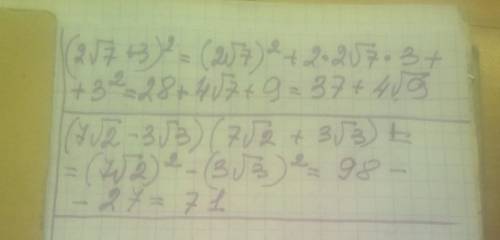 (2√7+3)² = (2√7)² + 2·2√7·3 +
+3² = 28 + 4√7 + 9 = 37 + 4√9
(7√2 - 3√3) (7√2 + 3√3) =
= (7√2)² - (3√3)² = 98 -
- 27 = 71